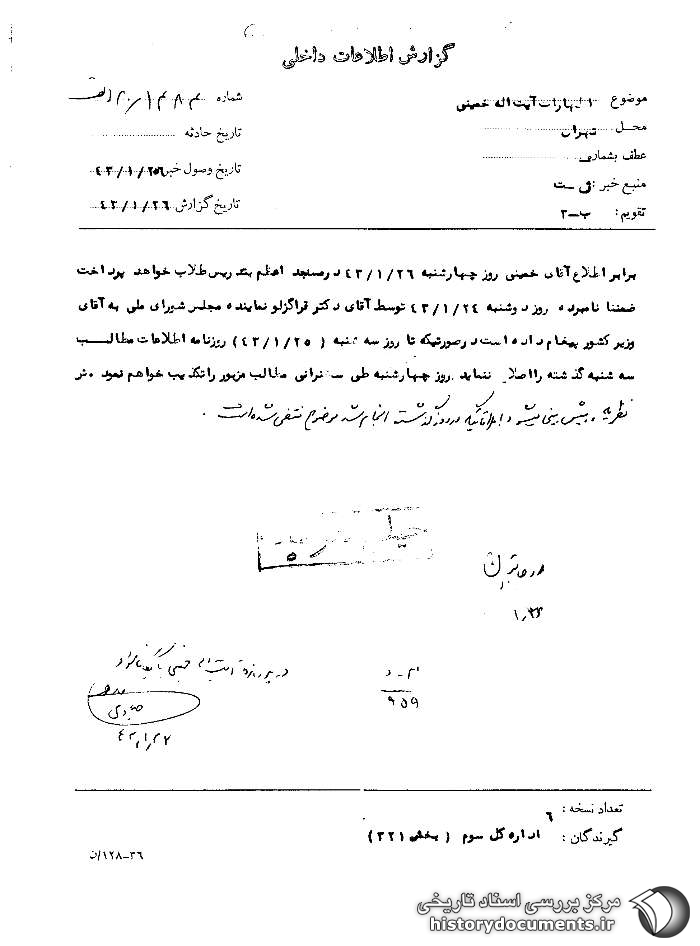 گزارش اطلاعات داخلی
موضوع اظهارات آیت اله خمینی
شماره
محل تهران
تاریخ حادثه
عطف بشماره
تاریخ وصول خبر ۴۳/۱/۲۵
منبع خبر :
تاریخ گزارش ۴۳/۱/۲۶
تقویم : ب-۳
برابر اطلاع آقای خمینی روز چهارشنبه ۴۳/۱/۲۶ در مسجد اعظم بتدریس طلاب خواهد پرداخت
ضمنا نامبرده روز دوشنبه ۴۳/۱/۲۴ توسط آقای دکتر قراگزلو نماینده مجلس شورای ملی به آقای
وزیر کشور پیغام داده است در صورتیکه تا روز سه شنبه ( ۴۳/۱/۲۵ ) روزنامه اطلاعات مطالب
سه شنبه گذشته را اصلاح ننماید روز چهارشنبه طی سخنرانی مطالب مزبور را تکذیب خواهم نمود
نظریه گذشته انجام شد موضوع منتفی شده است .
۹۵۹
تعداد نسخه : ۶
گیرندگان : اداره کل سوم ( بخش ۳۲۱ )
۱۲۸-۳۶/ن
مرکز بررسی اسناد تاریخی
historydocuments.ir